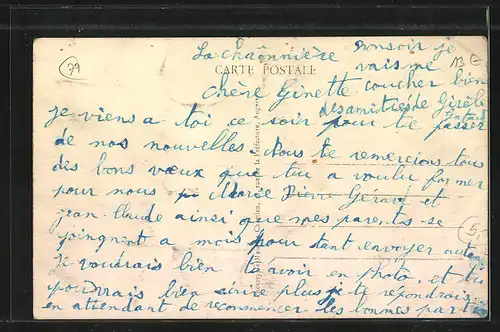 79
13 E
La chaînnière bonsoir je
vais me
CARTE POSTALE
chère Ginette coucher bien
des amitiés de Gisèle
je viens a toi ce soir pour te passer
de nos nouvelles. Nous te remercions tous
des bons vœux que tu a voulu former
pour nous Marie Pierre Gérard et
jean-Claude ainsi que mes parents se
joingnent a mois pour tant envoyer autant
je voudrais bien te avoir en photo. et tu
pourrais bien écrire plus je te répondrais
en attendant de recommencer les bonnes parties
5.-